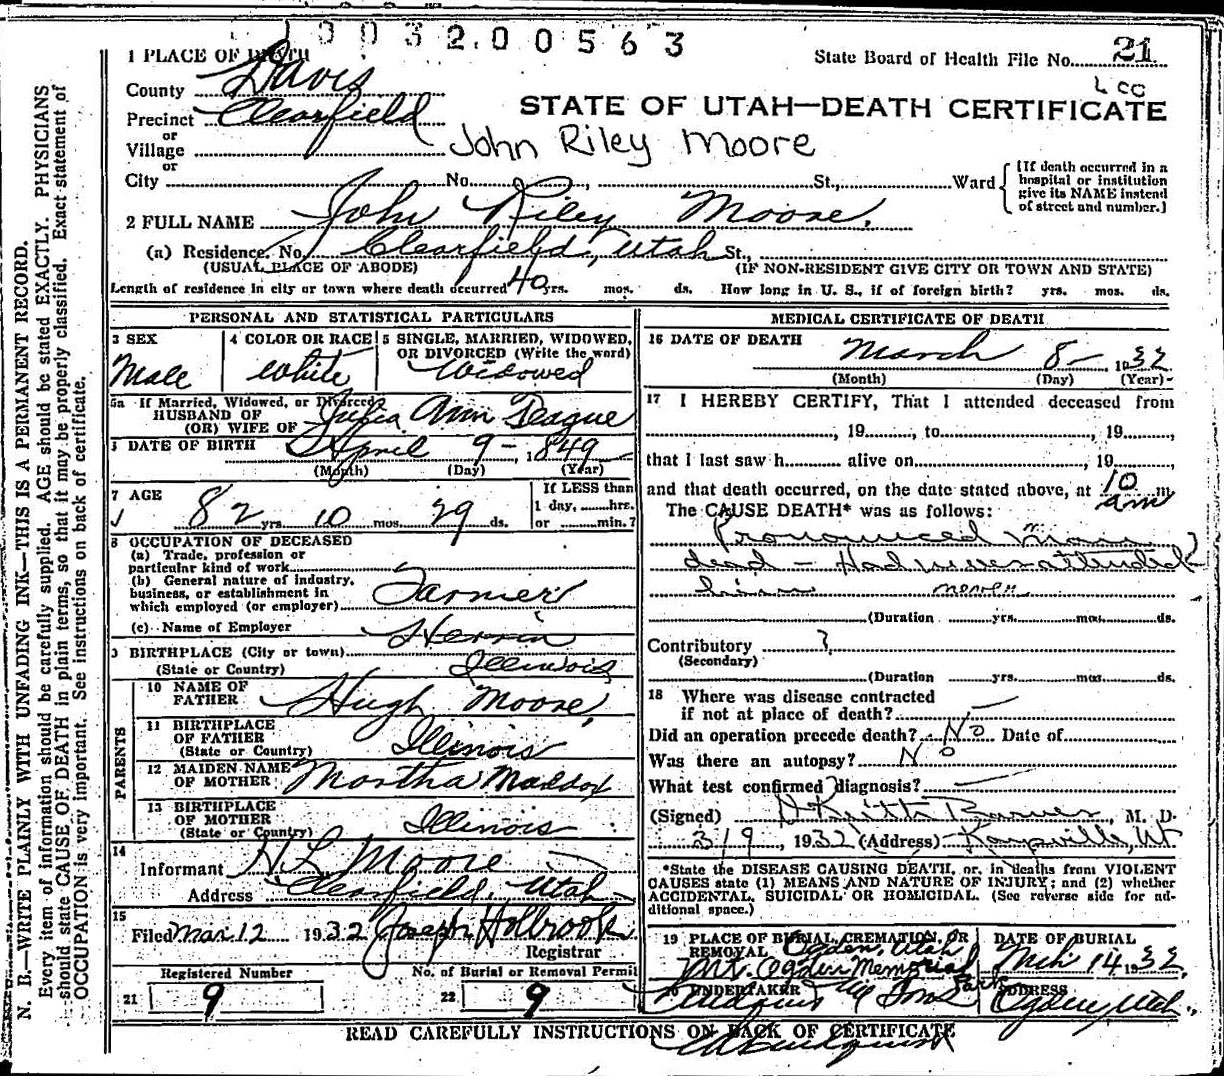 1003200563
1 PLACE OF DEATH
State Board of Health File No. 21
County Davis
Lcc
Precinct Clearfield
STATE OF UTAH—DEATH CERTIFICATE
or
Village
John Riley Moore
or
City No. , St., Ward
(If death occurred in a hospital or institution give its NAME instead of street and number.)
2 FULL NAME John Riley Moore,
(a) Residence, No. Clearfield, Utah St.,
(USUAL PLACE OF ABODE) (IF NON-RESIDENT GIVE CITY OR TOWN AND STATE)
Length of residence in city or town where death occurred 40 yrs. mos. ds. How long in U. S., if of foreign birth? yrs. mos. ds.
PERSONAL AND STATISTICAL PARTICULARS
3 SEX 4 COLOR OR RACE 5 SINGLE, MARRIED, WIDOWED,
OR DIVORCED (Write the word)
Male White Widowed
5a If Married, Widowed, or Divorced
HUSBAND OF
(OR) WIFE OF Julia Ann Teague
DATE OF BIRTH April 9- 1849
(Month) (Day) (Year)
7 AGE If LESS than
1 day, hrs.
82 yrs. 10 mos. 29 ds. or min.?
8 OCCUPATION OF DECEASED
(a) Trade, profession or
particular kind of work
(b) General nature of industry,
business, or establishment in
which employed (or employer) Farmer
(c) Name of Employer
9 BIRTHPLACE (City or town) Herrin
(State or Country) Illinois
PARENTS
10 NAME OF
FATHER Hugh Moore,
11 BIRTHPLACE
OF FATHER
(State or Country) Illinois
12 MAIDEN NAME
OF MOTHER Martha Maddox
13 BIRTHPLACE
OF MOTHER
(State or Country) Illinois
14
Informant H L Moore
Address Clearfield, Utah
15
Filed Mar 12 1932 Joseph Holbrook
Registrar
Registered Number No. of Burial or Removal Permit
21 9 22 9
MEDICAL CERTIFICATE OF DEATH
16 DATE OF DEATH March 8- 1932
(Month) (Day) (Year)
17 I HEREBY CERTIFY, That I attended deceased from
, 19 , to , 19 ,
that I last saw h alive on , 19 ,
and that death occurred, on the date stated above, at 10 am m
The CAUSE DEATH* was as follows:
Pronounced
dead – Had never attended
him
(Duration yrs. mos. ds.
Contributory ?
(Secondary)
(Duration yrs. mos. ds.
18 Where was disease contracted
if not at place of death? —
Did an operation precede death? No Date of
Was there an autopsy? No
What test confirmed diagnosis? —
(Signed) D Keith Barnes, M. D.
3/9, 1932 (Address) Kaysville, Ut.
*State the DISEASE CAUSING DEATH, or, in deaths from VIOLENT
CAUSES state (1) MEANS AND NATURE OF INJURY; and (2) whether
ACCIDENTAL, SUICIDAL OR HOMICIDAL. (See reverse side for ad-
ditional space.)
19 PLACE OF BURIAL, CREMATION, OR
REMOVAL Ogden, Utah
Mt. Ogden Memorial Park
DATE OF BURIAL
Mch 14 1932
20 UNDERTAKER ADDRESS
Lindquist & Sons Ogden, Utah.
READ CAREFULLY INSTRUCTIONS ON BACK OF CERTIFICATE
N. B.—WRITE PLAINLY WITH UNFADING INK—THIS IS A PERMANENT RECORD.
Every item of information should be carefully supplied. AGE should be stated EXACTLY. PHYSICIANS
should state CAUSE OF DEATH in plain terms, so that it may be properly classified. Exact statement of
OCCUPATION is very important. See instructions on back of certificate.